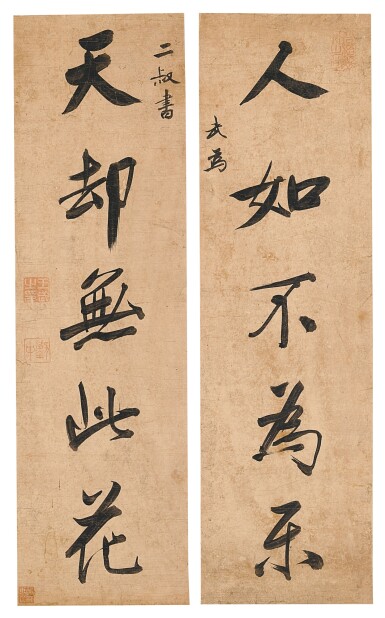 人如不為乐
為
天却無此花
二叔書